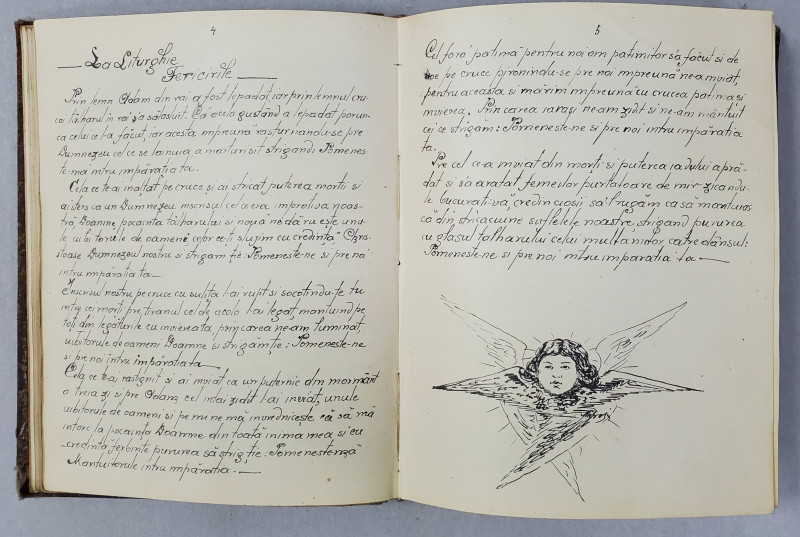 4
La Liturghie
Fericirile
Prin lemn Adam din rai a fost lepadat, iar prin lemnul cru-
cei tâlharul in rai sa salasluit. Ca acela gustând a lepadat porun-
ca celui ce l-a făcut, iar acesta impreună rasturnandu-se pre
Dumnezeu cel ce se tainuia, a marturisit strigand: Pomenes-
te-ma intru impăratia ta.
Cela ce te-ai inaltat pe cruce și ai stricat puterea mortii si
ai sters ca un Dumnezeu inscrisul cel ce era improtiva noas-
tră, Doamne pocainta tâlharului si nouă ne dă ruește, unu-
le iubitorule de oameni celor ce-ti slujim cu credință Chris-
stoase Dumnezeu nostru si strigam ție: Pomeneste-ne si pre noi
intru impărația ta—
Inscrisul nostru pe cruce cu sulița l-ai rupt si socotindu-te tu
intre cei morți pre tiranul cel de acolo l-ai legat, mantuind pe
toți din legăturile cu invierea ta, prin carea ne-am luminat,
iubitorule de oameni Doamne si strigăm ție: Pomeneste-ne
si pre noi intru impăratia ta—
Cela ce te-ai rastignit si ai inviat ca un puternic din mormânt
a treia zi si pre Adam, cel intai zidit l-ai inviat, unule
iubitorule de oameni si pe mine mă invredniceste ca să mă
intorc la pocaința Doamne din toată inima mea si cu
credință ferbinte pururea să strig ție: Pomeneste-mă
Mantuitorule intru impăratia.—
5
Cel fără patimă pentru noi om patimitor s'a făcut si de
voe pe cruce pironindu-se pre noi impreună ne-a inviat,
pentru aceasta si mărim impreună cu crucea patima si
invierea. Prin carea iarasi ne-am zidit si ne-am mântuit
cei ce strigăm: Pomeneste-ne si pre noi intru impărația
ta.
Pre cel ce-a inviat din morți si puterea iadului a pră-
dat si s'a aratat femeilor purtatoare de mir zicandu-
le bucurati-vă, credinciosii să'l rugăm ca să mantuias
că din stricaciune sufletele noastre, strigand pururea
cu glasul talharului celui multămitor, catre dânsul:
Pomeneste-ne si pre noi intru imparatia ta—